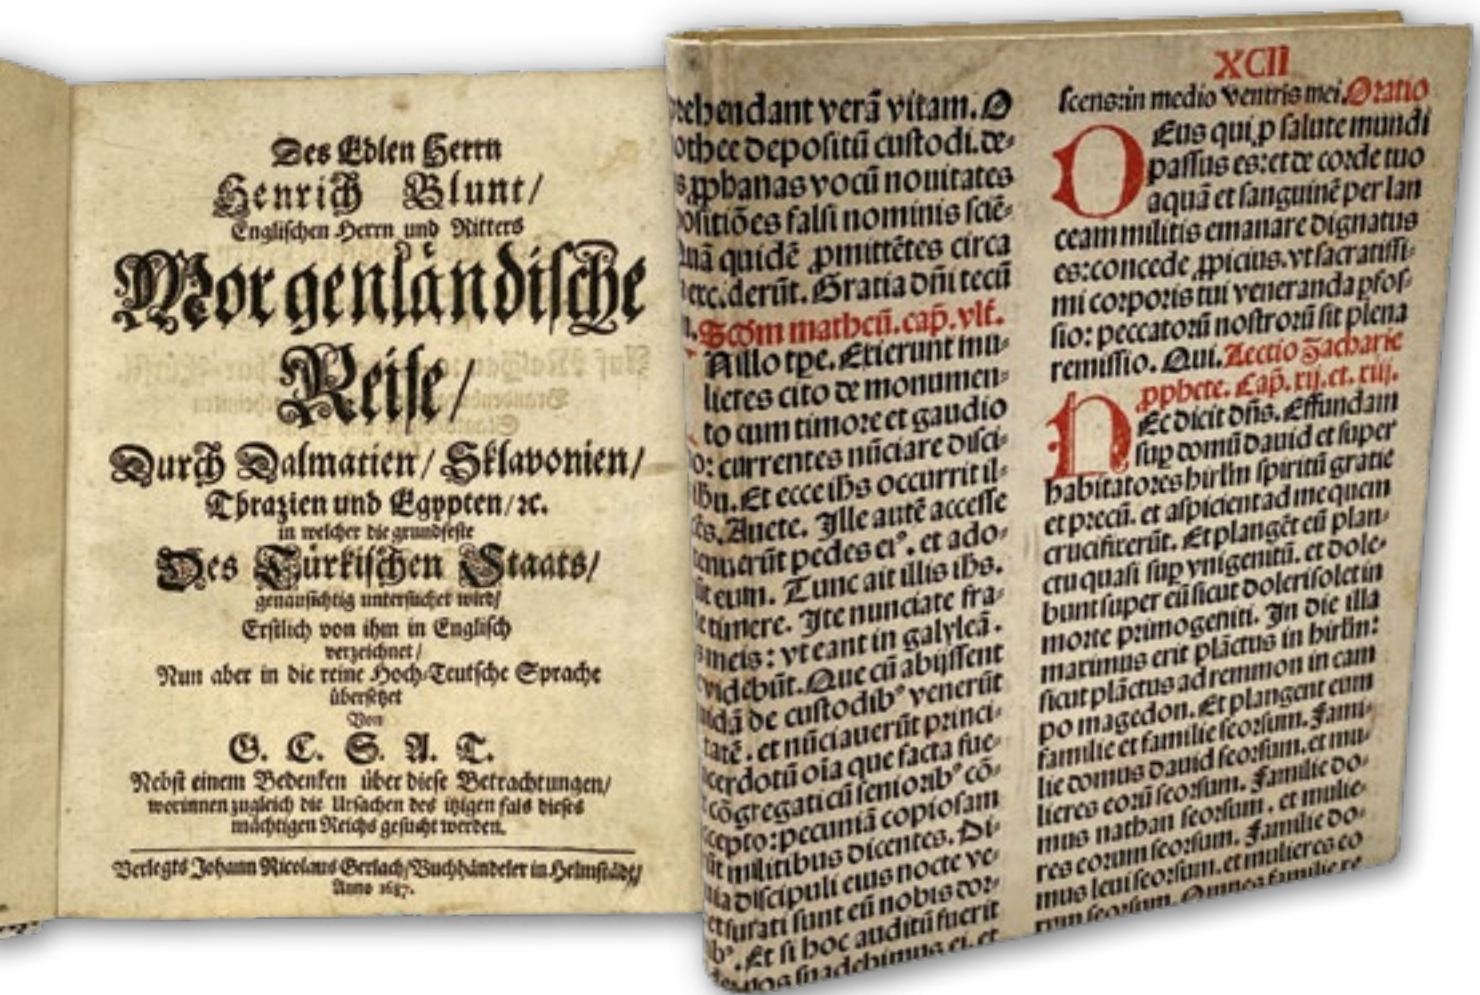 Des Edlen Herrn
Henrich Blunt/
Englischen Herrn und Ritters
Morgenländische
Reise/
Durch Dalmatien/ Sklavonien/
Thrazien und Egypten/ ꝛc.
in welcher die grundfeste
Des Türkischen Staats/
genausichtig untersuchet wird/
Erstlich von ihm in Englisch
verzeichnet/
Nun aber in die reine Hoch-Teutsche Sprache
übersetzet
Von
G. C. S. A. T.
Nebst einem Bedenken über diese Betrachtungen/
worinnen zugleich die Ursachen des itzigen fals dieses
mächtigen Reichs gesucht werden.
Verlegts Johann Nicolaus Gerlach/ Buchhändeler in Helmstädt/
Anno 1687.
prehendant verã vitam. O
othee depositũ custodi. de-
s ꝓphanas vocũ nouitates
positiões falsi nominis sciẽ-
quã quidẽ ꝓmittẽtes circa
derũt. Gratia dñi tecũ
Scdm matheũ. cap̃. vlt̃.
N illo tꝑe. Exierunt mu-
lieres cito de monumen-
to cum timore et gaudio
currentes nũciare disci-
Et ecce ihs occurrit il-
Auete. Ille autẽ accesse
tenuerũt pedes eiꝰ. et ado-
eum. Tunc ait illis ihs.
timere. Ite nunciate fra-
meis: vt eant in galyleã.
videbũt. Que cũ abijssent
de custodibꝰ venerũt
et nũciauerũt princi-
oĩa que facta fue-
cõgregati cũ senioribꝰ cõ-
pecuniã copiosam
militibus dicentes. Di-
discipuli eius nocte ve-
furati sunt eũ nobis dor-
Et si hoc auditũ fuerit
XCII
scens: in medio ventris mei. Oratio
OEus qui ꝓ salute mundi
passus es: et de corde tuo
aquã et sanguinẽ per lan
ceam militis emanare dignatus
es: concede ꝓpicius. vt sacratissi-
mi corporis tui veneranda pfos-
sio: peccatorũ nostrorũ sit plena
remissio. Qui. Lectio Zacharie
ꝓphete. Cap̃. xij. et. xiij.
HEc dicit dñs. Effundam
suꝑ domũ dauid et super
habitatores hirlm̃ spiritũ gratie
et precũ. et aspicient ad me quem
crucifixerũt. Et plangẽt eũ plan-
ctu quasi suꝑ vnigenitũ. et dole-
bunt super eũ sicut doleri solet in
morte primogeniti. In die illa
maximus erit plãctus in hirlm̃:
sicut plãctus adremmon in cam
po magedon. Et plangent eum
familie et familie seorsum. Fami-
lie domus dauid seorsum. et mu-
lieres eorũ seorsum. Familie do-
mus nathan seorsum. et mulie-
res eorum seorsum. Familie do-
mus leui seorsum. et mulieres eo
rum seorsum. Omnes familie re